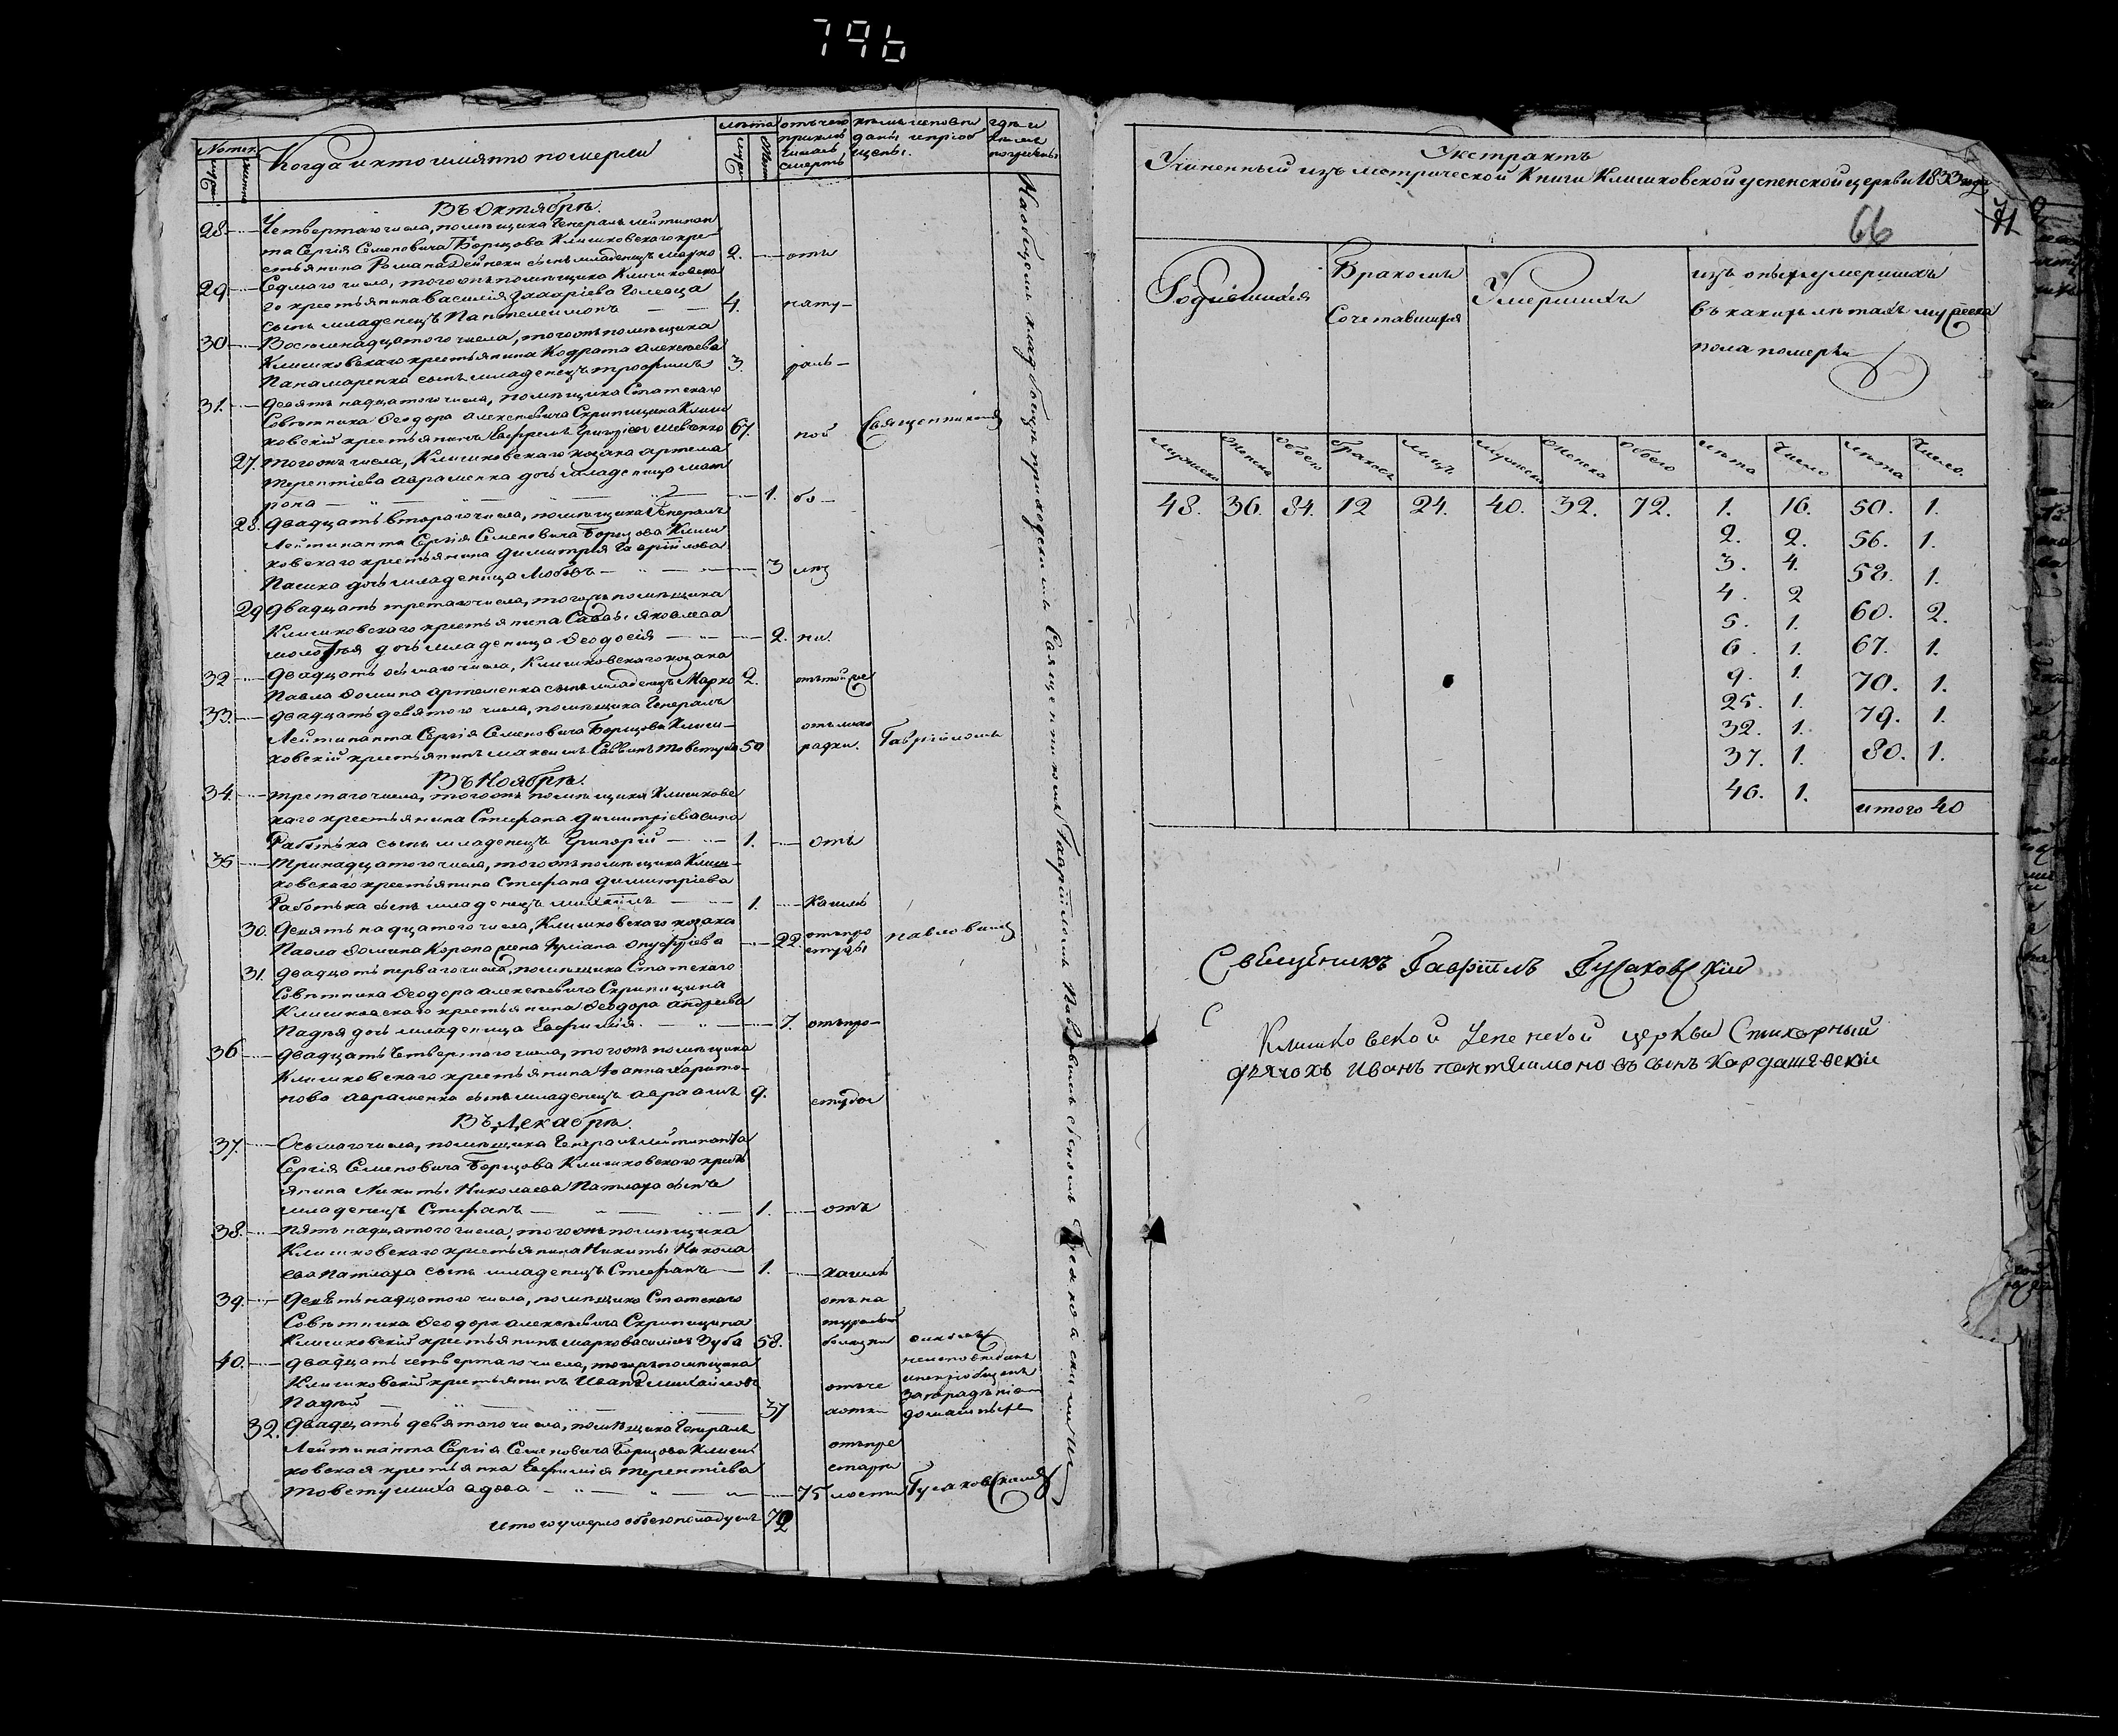 796
Номеръ
мужеска
женска
Когда и кто имянно померли
лѣта
мужеска
женска
отъ чего приключилась смерть
кѣмъ исповѣданы и пріобщены.
гдѣ и кѣмъ погребены
Въ Октябрѣ.
28. Четвертаго числа, помѣщика Генералъ лейтинан
та Сергія Семеновича Борщова Клишковскаго кре
стьянина Романа Дейнеки сынъ младенецъ Марко 2. отъ
29. Седмаго числа, тогожъ помѣщика Клишковска
го крестьянина Василія Захаріева
сынъ младенецъ Пантелеимонъ 4. нату-
30. Восемнадцатого числа, тогожъ помѣщика
Клишковскаго крестьянина Кодрата Алексѣева
Панамаренка сынъ младенецъ Трофимъ 3. раль-
31. Девятьнадцатого числа, помѣщика Статскаго
Совѣтника Феодора Алексѣевича Скрипицина Клиш
ковскій крестьянинъ Ефремъ Григоріевъ Шевченко 67. ной Священникомъ
27. Тогожъ числа, Клишковскаго козака Артема
Терентіева Авраменка дочь младеница Мат
рона 1. бо-
28. Двадцать втораго числа, помѣщика Генералъ
Лейтинанта Сергія Семеновича Борщова Клиш
ковскаго крестьянина Димитрія Гавріилова
Пасика дочь младеница Любовъ 3 лѣз
29 Двадцать третаго числа, тогожъ помѣщика
Клишковскаго крестьянина Саввы Яковлева
дочь младеница Феодосія 2. ни.
32 Двадцать осьмаго числа, Клишковскаго козака
Павла Фомина Артюменка сынъ младенецъ Марко 2. отътой же
33. Двадцать девятого числа, помѣщика Генералъ
Лейтинанта Сергія Семеновича Борщова Клиш-
ковскій крестьянинъ Максимъ Саввинъ Товстуха 50 отъ лихорадки. Гавріиломъ
Въ Ноябрѣ.
34. Третаго числа, тогожъ помѣщика Клишковс
каго крестьянина Стефана Димитріева сына
Работька сынъ младенецъ Григорій 1. отъ
35 Тринадцатого числа, тогожъ помѣщика Клиш-
ковскаго крестьянина Стефана Димитріева
Работька сынъ младенецъ Михаилъ 1. Кашлю
30. Девятьнадцатого числа, Клишковскаго козака
Павла Фомина жена Іуліана Онуфріева 22. отъ простуды Павловимъ
31. Двадцать перваго числа, помѣщика Статскаго
Совѣтника Феодора Алексѣевича Скрипицина
Клишковскаго крестьянина Феодора Андреева
Надѣя дочь младеница Евфимія. 7. отъ про-
36 Двадцать четвертаго числа, тогожъ помѣщика
Клишковскаго крестьянина Іоанна Харито-
нова Авраменка сынъ младенецъ Авраамъ 9. студы
Въ Декабрѣ.
37. Осьмаго числа, помѣщика Генералъ лейтинанта
Сергія Семеновича Борщова Клишковскаго кресть
янина Никиты Николаева Патлаха сынъ
младенецъ Стефанъ 1. отъ
38. Пятьнадцатого числа, тогожъ помѣщика
Клишковскаго крестьянина Никиты Никола
ева Патлаха сынъ младенецъ Стефанъ 1. кашлю
39. Девятьнадцатого числа, помѣщика Статскаго
Совѣтника Феодора Алексѣевича Скрипицина
Клишковскій крестьянинъ Марко Василіевъ Зуба 58. отъ натуральной болѣзни
40. Двадцать четвертаго числа, тогожъ помѣщика
Клишковскій крестьянинъ Иванъ Михайловъ
Надѣй 37 отъ чахотки
32. Двадцать девятого числа, помѣщика Генералъ
Лейтинанта Сергія Семеновича Борщова Клиш
ковская крестьянка Евфимія Терентіева
Товстушиха вдова 75 отъ престарѣлости Гусаковскимъ
Итого умерло обоего пола душъ 72
На общемъ кладбищѣ приходскимъ Священникомъ Гавріиломъ Павловимъ сыномъ Гусаковскимъ
Экстрактъ
Учиненный изъ метрической Книги Клишковской успенской церкви 1833 года
66
71
Родившихся
Бракомъ Сочетавшихся
Умершихъ
изъ оныхъ умершихъ
въ какихъ лѣтахъ мужеска
пола померли
мужеска женска обоего браковъ лицъ мужеска женска обоего лѣта число лѣта Число.
48. 36. 84. 12 24. 40. 32. 72. 1. 16. 50. 1.
2. 2. 56. 1.
3. 4. 58. 1.
4. 2 60. 2.
5. 1. 67. 1.
6. 1. 70. 1.
9. 1. 79. 1.
25. 1. 80. 1.
32. 1.
37. 1.
46. 1.
итого 40
Священникъ Гавріилъ Гусаковскій
Клишковской Успенской церкви Стихарный
дьячокъ Иванъ Пантелимоновъ сынъ Кардашевскій